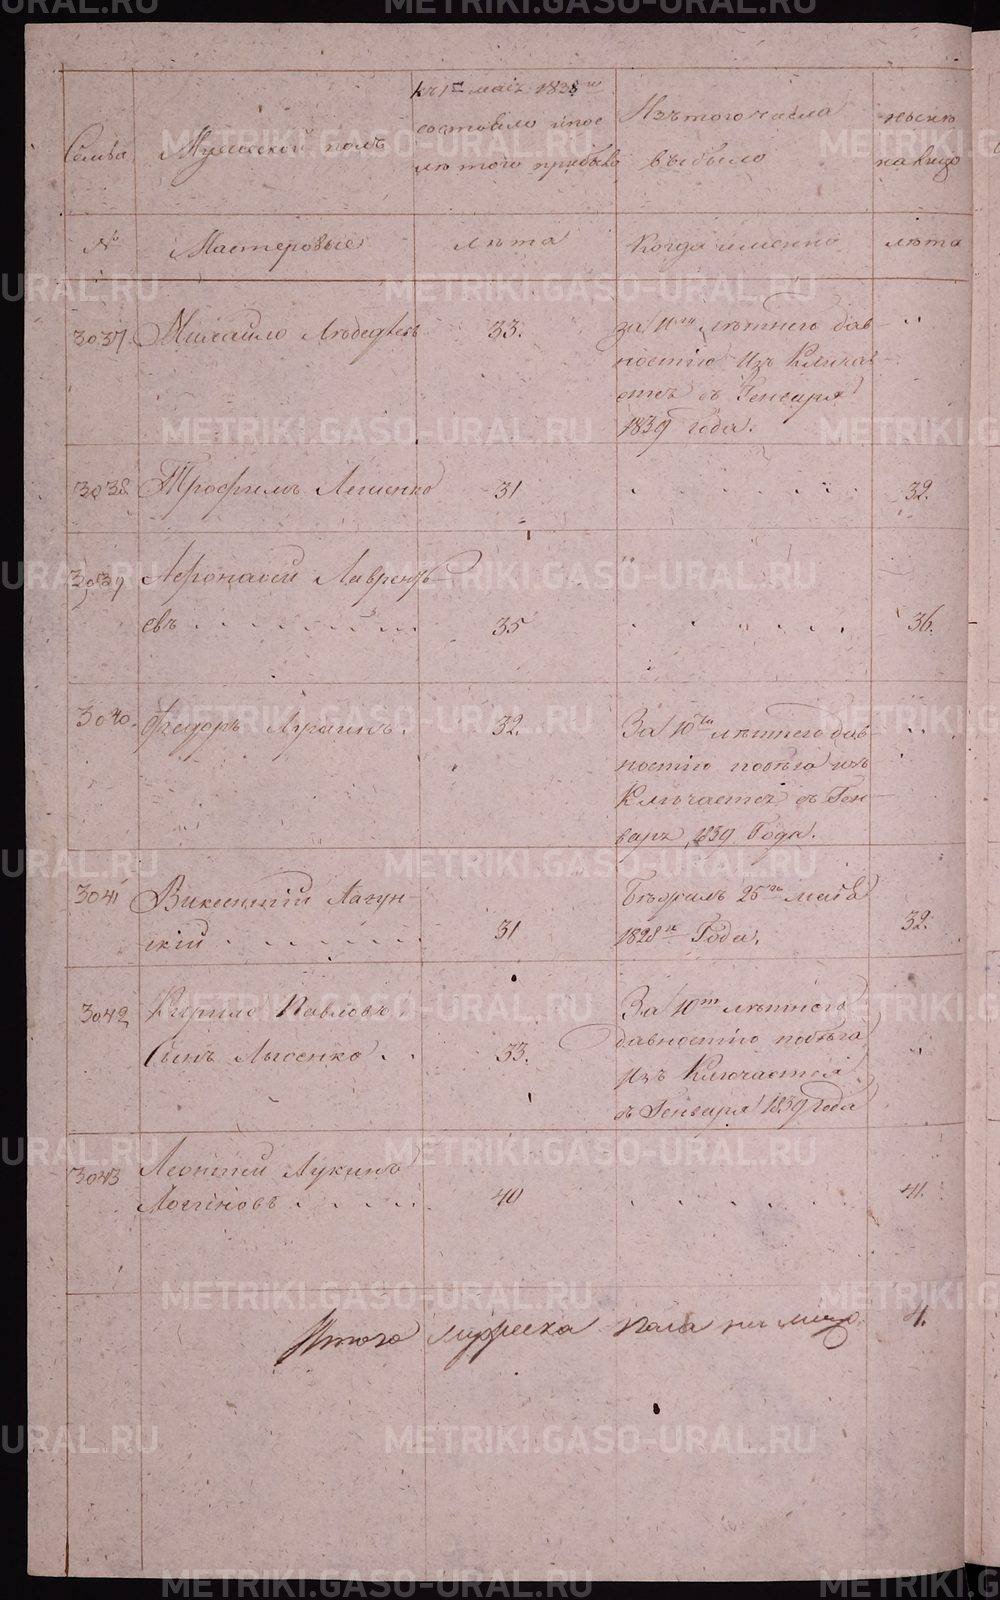 METRIKI.GASO-URAL.RU
Семьи
Мужеской полъ
къ 1е маія 1828го
состояло и по
лѣ того прибыло
Изъ того числа
выбыло
нынѣ
на лицо
№
Мастеровые
лѣта
когда именно
лѣта
3037. Михайло Лебедевъ 33. за 10ти лѣтнею дав-
ностію изъ
съ Генваря
1839 года.
3038. Трофимъ Лешенко 31 32.
3039 Афонасей Лаврентъ-
евъ 35 36.
3040. Федоръ 32. За 10ти лѣтнею дав-
ностію побѣга изъ
съ Ген-
варя 1839 Года.
3041 Викентій Лагун-
скій 31 Бѣжалъ 25го маія
1828го Года. 32.
3042 Кирило Павловъ
Сынъ Лысенко 33. За 10ти лѣтнею
давностію побѣга
изъ
съ Генваря 1839 года
3043 Леонтей Лукинъ
Логиновъ 40 41.
Итого мужеска пола на лицо. 4.